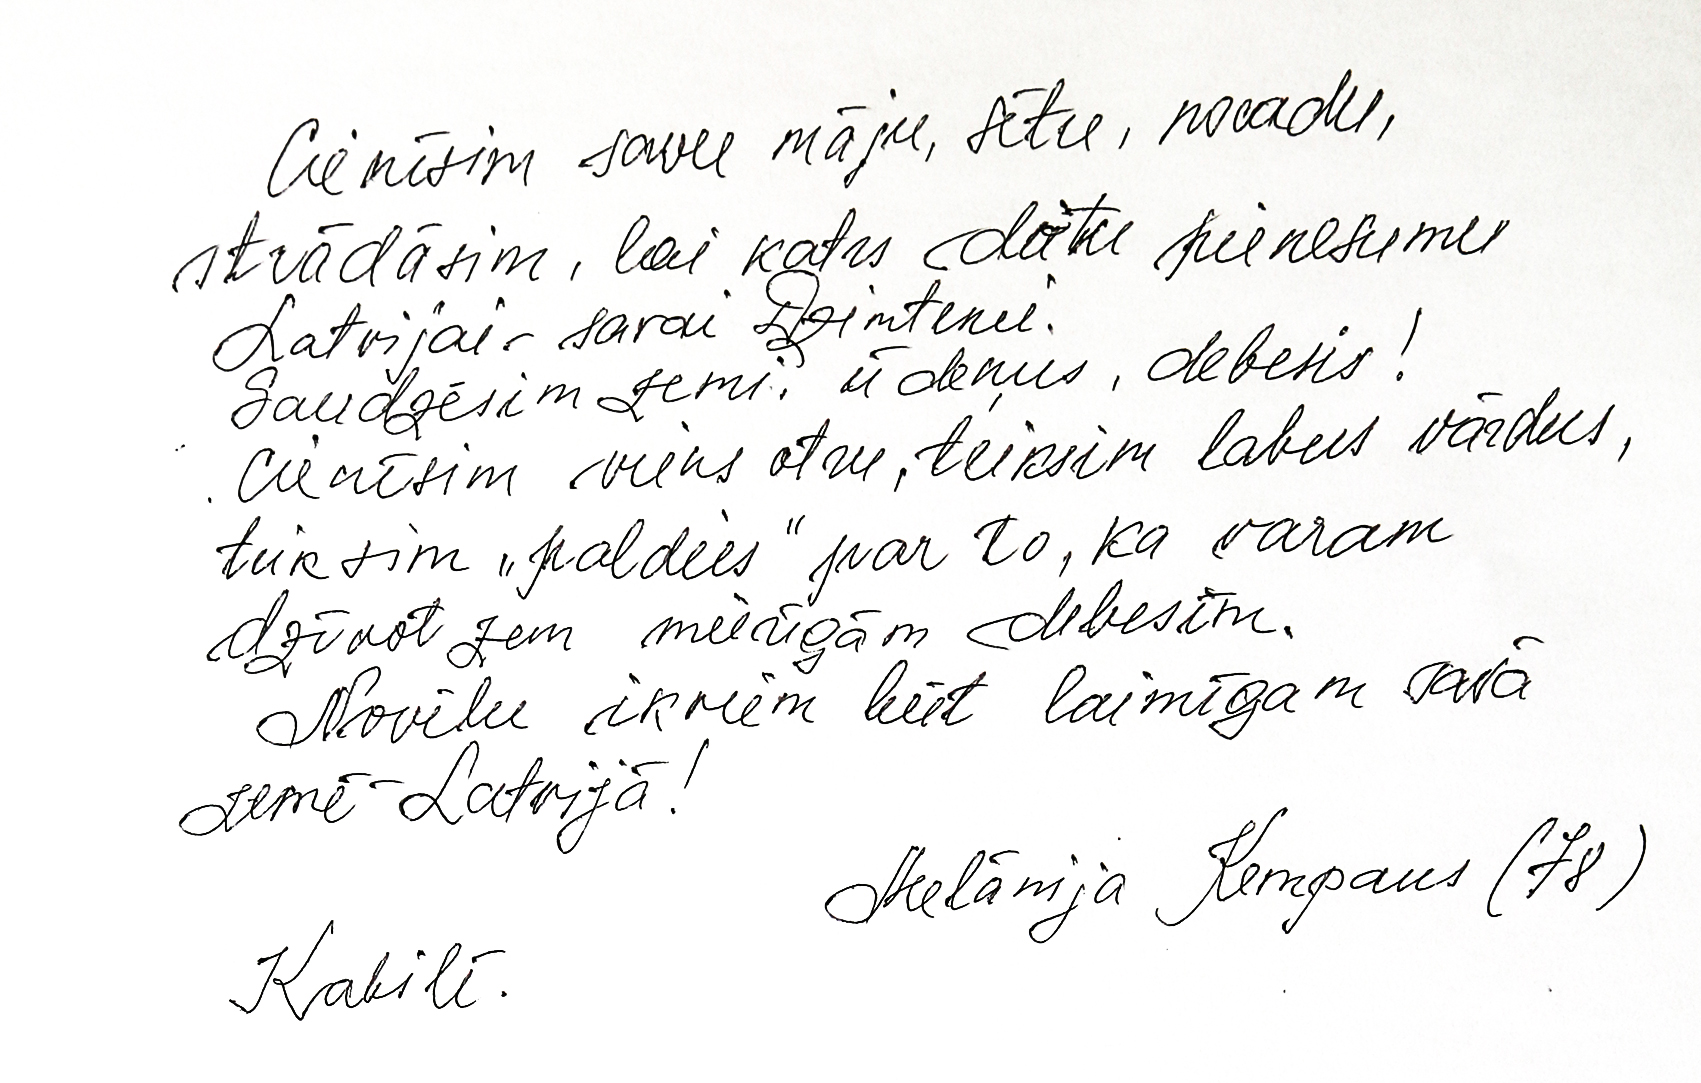 Cienīsim savu māju, sētu, novadu,
strādāsim, lai katrs dotu pienesumu
Latvijai - savai Dzimtenei.
Saudzēsim zemi, ūdeņus, debesis!
Cienīsim viens otru, teiksim labus vārdus,
teiksim „paldies“ par to, ka varam
dzīvot zem mierīgām debesīm.
Novēlu ikvienam būt laimīgam savā
zemē - Latvijā!
Melānija Kempaus (78)
Kabilē.